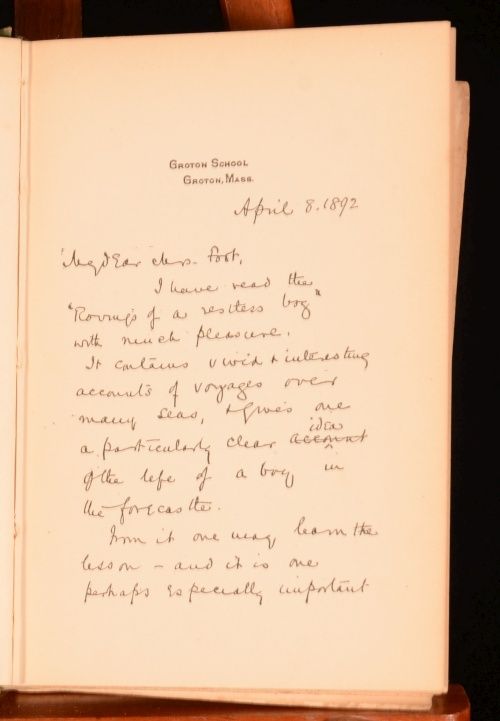 GROTON SCHOOL
GROTON, MASS.
April 8. 1892
My dear Mrs. Foot,
I have read the
"Rovings of a restless boy"
with much pleasure.
It contains vivid & interesting
accounts of voyages over
many seas, & gives one
idea
a particularly clear account
of the life of a boy in
the forecastle.
From it one may learn the
lesson – and it is one
perhaps especially important